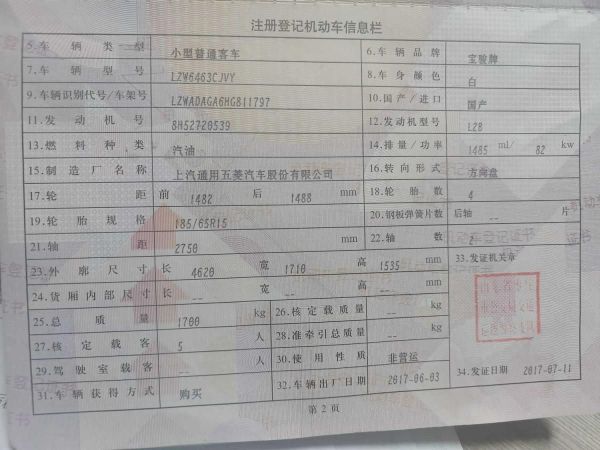 注册登记机动车信息栏
5.车辆类型 小型普通客车 6.车辆品牌 宝骏牌
7.车辆型号 LZW6463CJVY 8.车身颜色 白
9.车辆识别代号/车架号 LZWADAGA6HG811797 10.国产/进口 国产
11.发动机号 8H52720539 12.发动机型号 L2B
13.燃料种类 汽油 14.排量/功率 1485 ml/ 82 kw
15.制造厂名称 上汽通用五菱汽车股份有限公司 16.转向形式 方向盘
17.轮距 前 1482 后 1488 mm 18.轮胎数 4
19.轮胎规格 185/65R15 20.钢板弹簧片数 后轴 -- 片
21.轴距 2750 mm 22.轴数 2
23.外廓尺寸 长 4620 宽 1710 高 1535 mm 33.发证机关章
24.货厢内部尺寸 长 -- 宽 -- 高 -- mm
25.总质量 1700 kg 26.核定载质量 -- kg
27.核定载客 5 人 28.准牵引总质量 -- kg
29.驾驶室载客 -- 人 30.使用性质 非营运
31.车辆获得方式 购买 32.车辆出厂日期 2017-06-03 34.发证日期 2017-07-11
第2页